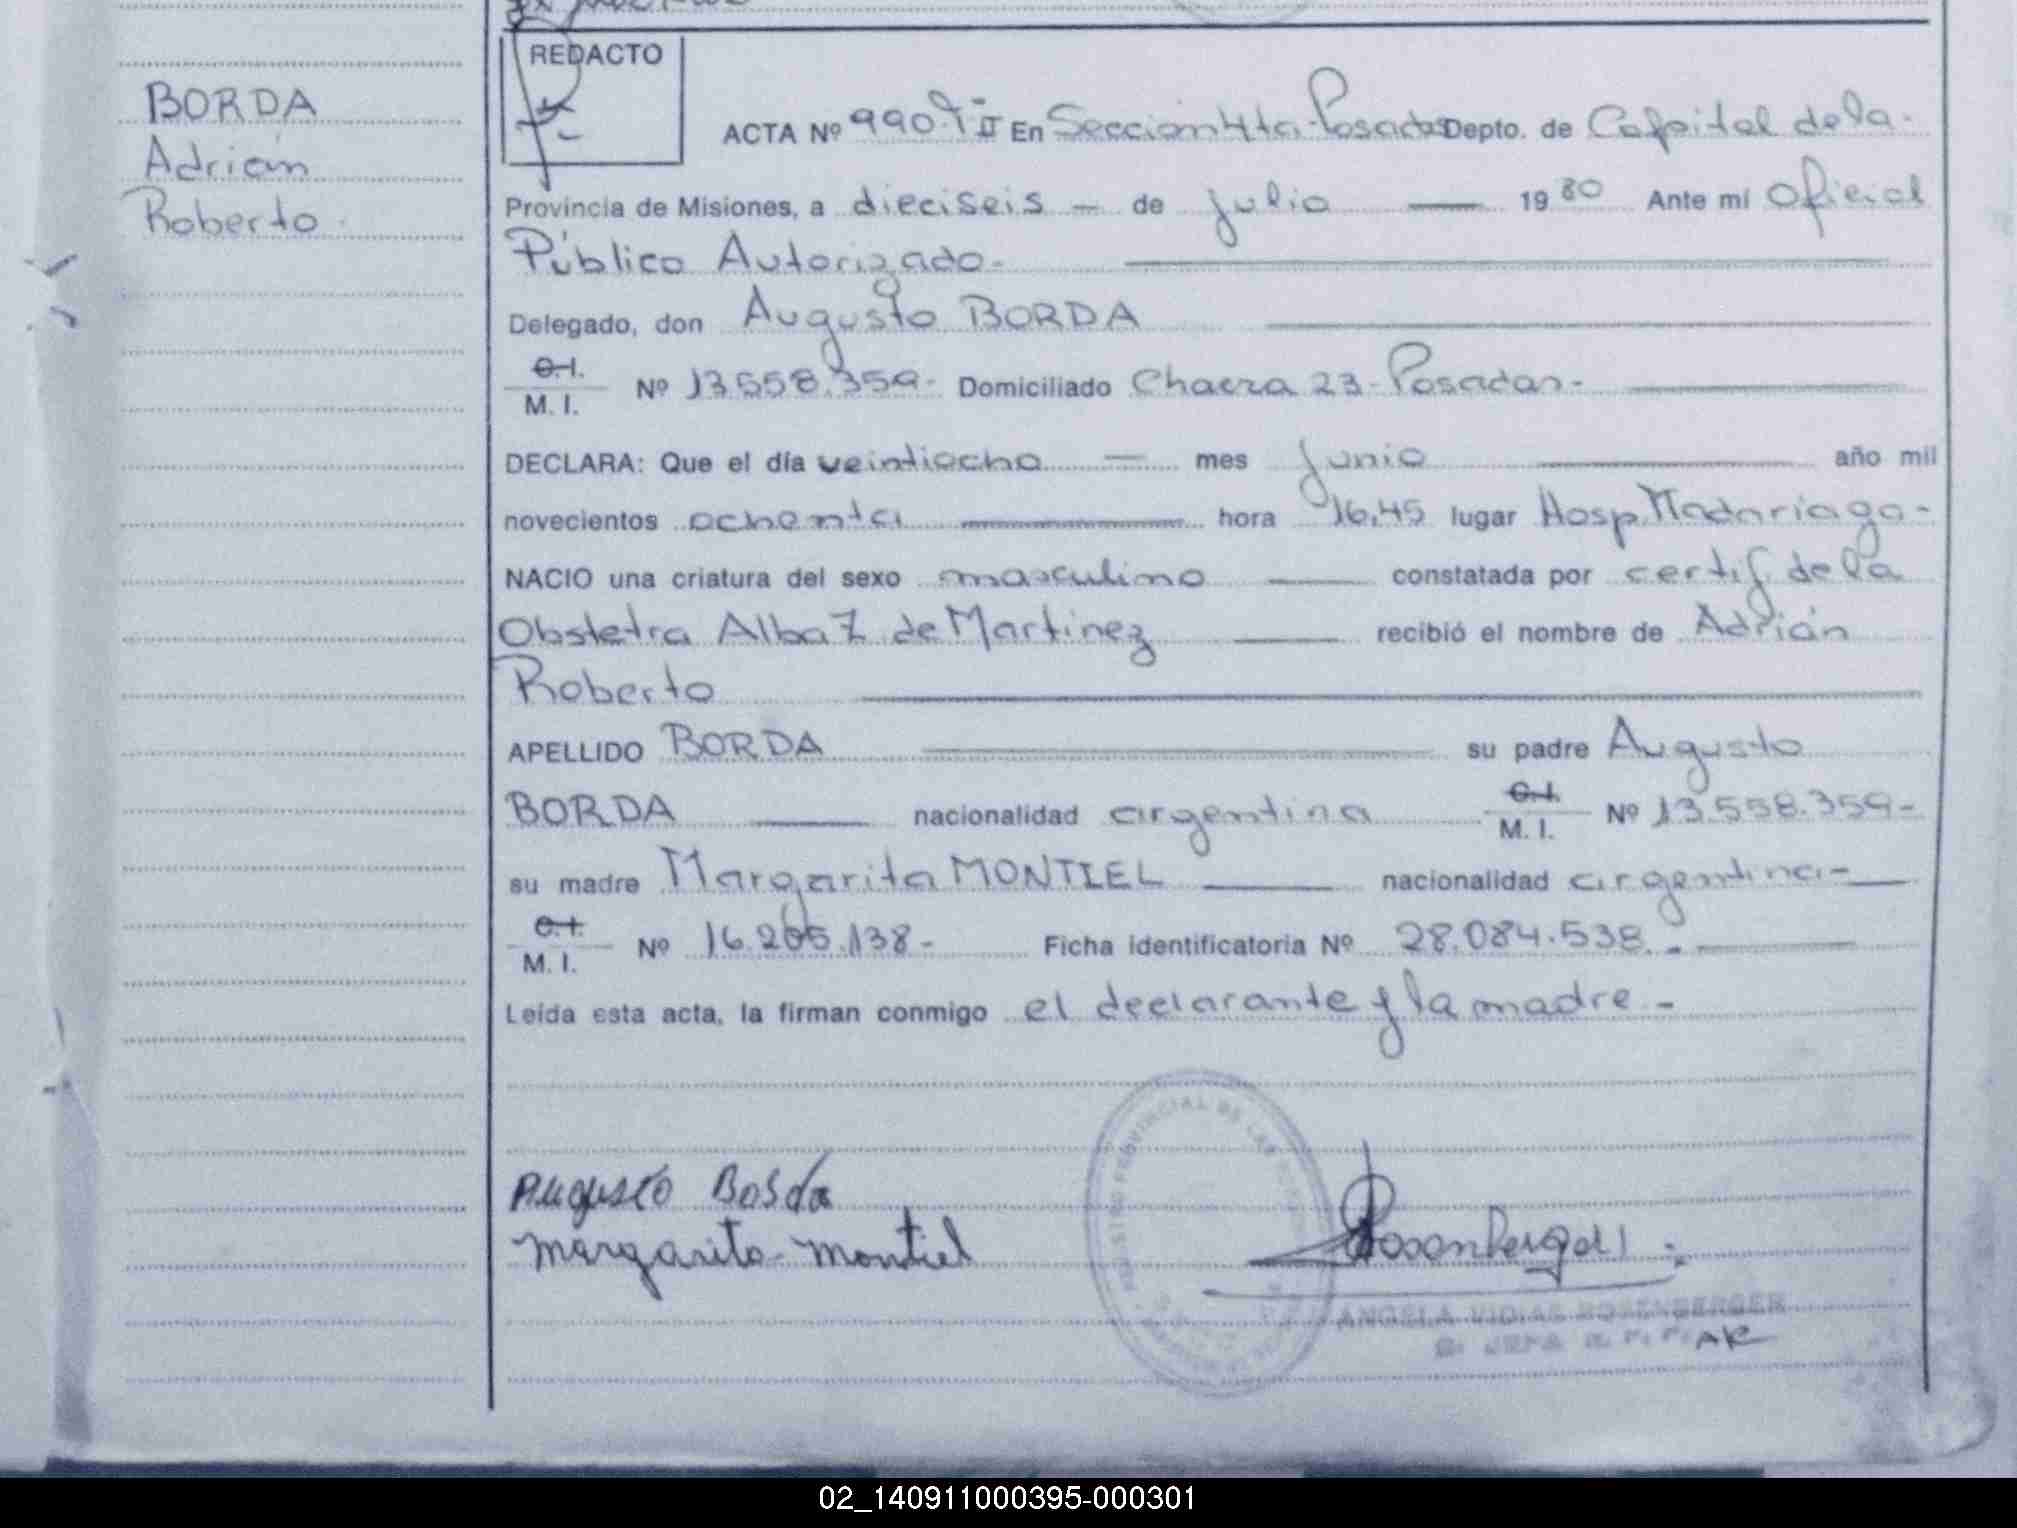 REDACTO
BORDA
Adrián
Roberto.
ACTA Nº 990. T II En Sección 4ta-Posadas Depto. de Capital de la.
Provincia de Misiones, a dieciseis - de julio — 19 80 Ante mí Oficial
Público Autorizado-
Delegado, don Augusto BORDA
C.I.
M. I. Nº 13.558.359- Domiciliado Chacra 23-Posadas-
DECLARA: Que el día veintiocho — mes junio — año mil
novecientos ochenta — hora 16,45 lugar Hosp. Madariaga-
NACIO una criatura del sexo masculino — constatada por certif. de la
Obstetra Alba Z de Martinez — recibió el nombre de Adrián
Roberto
APELLIDO BORDA — su padre Augusto
BORDA — nacionalidad argentina C.I. M. I. Nº 13.558.359-
su madre Margarita MONTIEL — nacionalidad argentina-
C.I.
M. I. Nº 16.265.138- Ficha identificatoria Nº 28.084.538.-
Leída esta acta, la firman conmigo el declarante y la madre-
Augusto Borda
Margarita-Montiel
PROVINCIAL DE LAS
ROSENBERGER
02_140911000395-000301